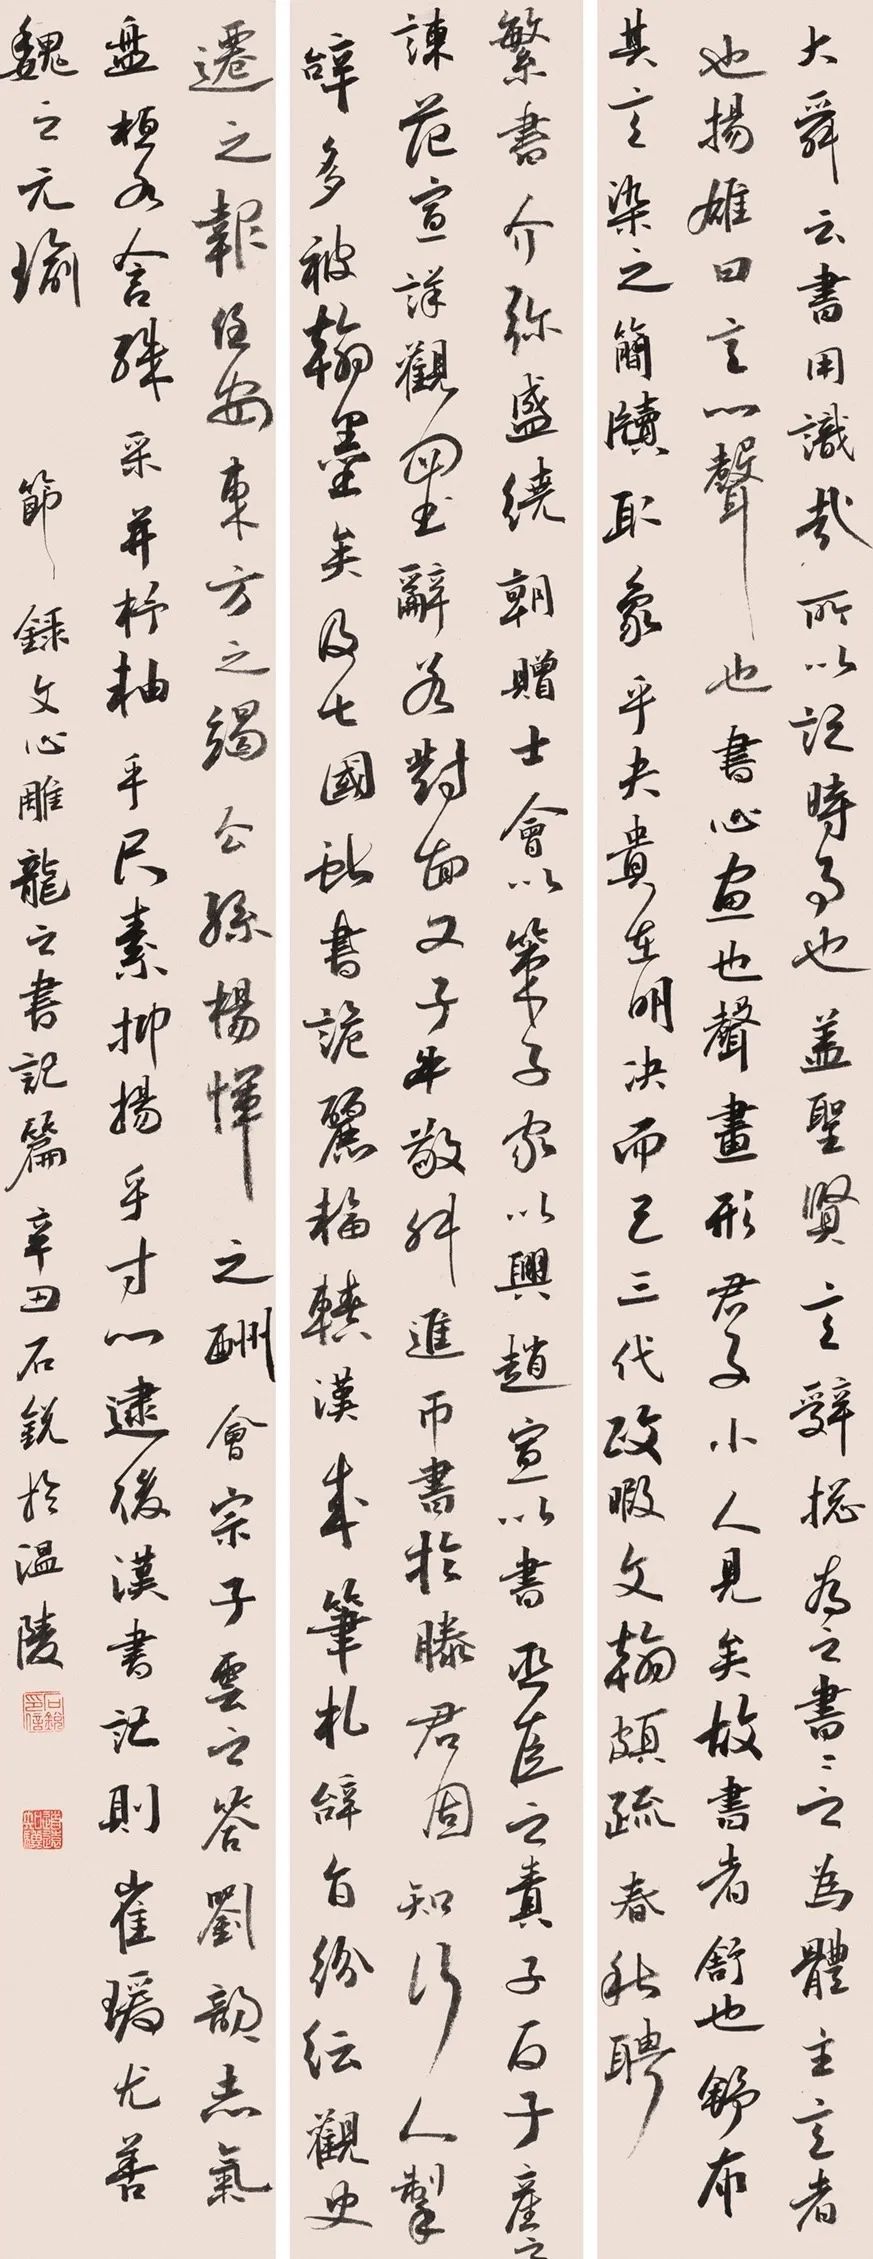 大舜云書用識哉所以記時事也蓋聖賢言辭揔為之書〻之為體主言者
也揚雄曰言心聲也書心画也聲畫形君子小人見矣故書者舒也舒布
其言染之簡牘取象乎夬貴在明决而已三代政暇文翰頗疏春秋聘
繁書介弥盛繞朝贈士會以策子家以與趙宣以書巫臣之責子反子產之
諫范宣詳觀四書辭若對面又子叔敬叔進弔書於滕君固知行人挈
辭多被翰墨矣及七國獻書詭麗輻輳漢來筆札辭旨紛紜觀史
遷之報任安東方之謁公孫楊惲之酬會宗子雲之答劉歆志氣
盤桓各含殊采并杼柚乎尺素抑揚乎寸心逮後漢書記則崔瑗尤善
魏之元瑜
節録文心雕龍之書記篇辛丑石銳於温陵
石銳印信